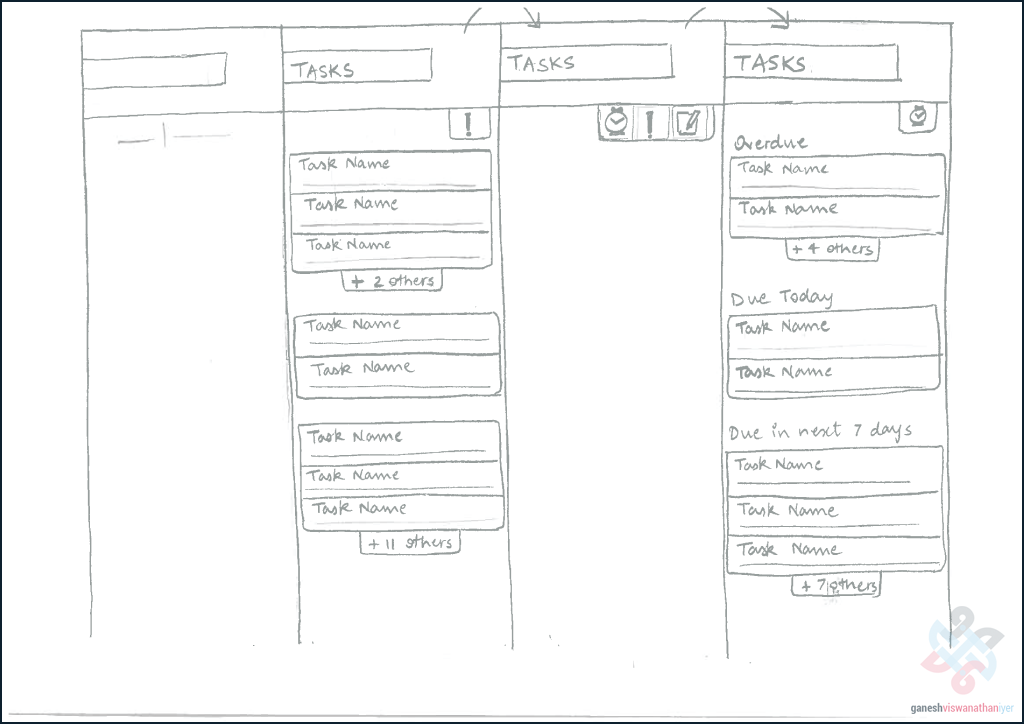 TASKS
!
Task Name
Task Name
Task Name
+ 2 others
Task Name
Task Name
Task Name
Task Name
Task Name
+ 11 others
TASKS
!
TASKS
Overdue
Task Name
Task Name
+ 4 others
Due Today
Task Name
Task Name
Due in next 7 days
Task Name
Task Name
Task Name
+ 7 others
ganeshviswanathaniyer